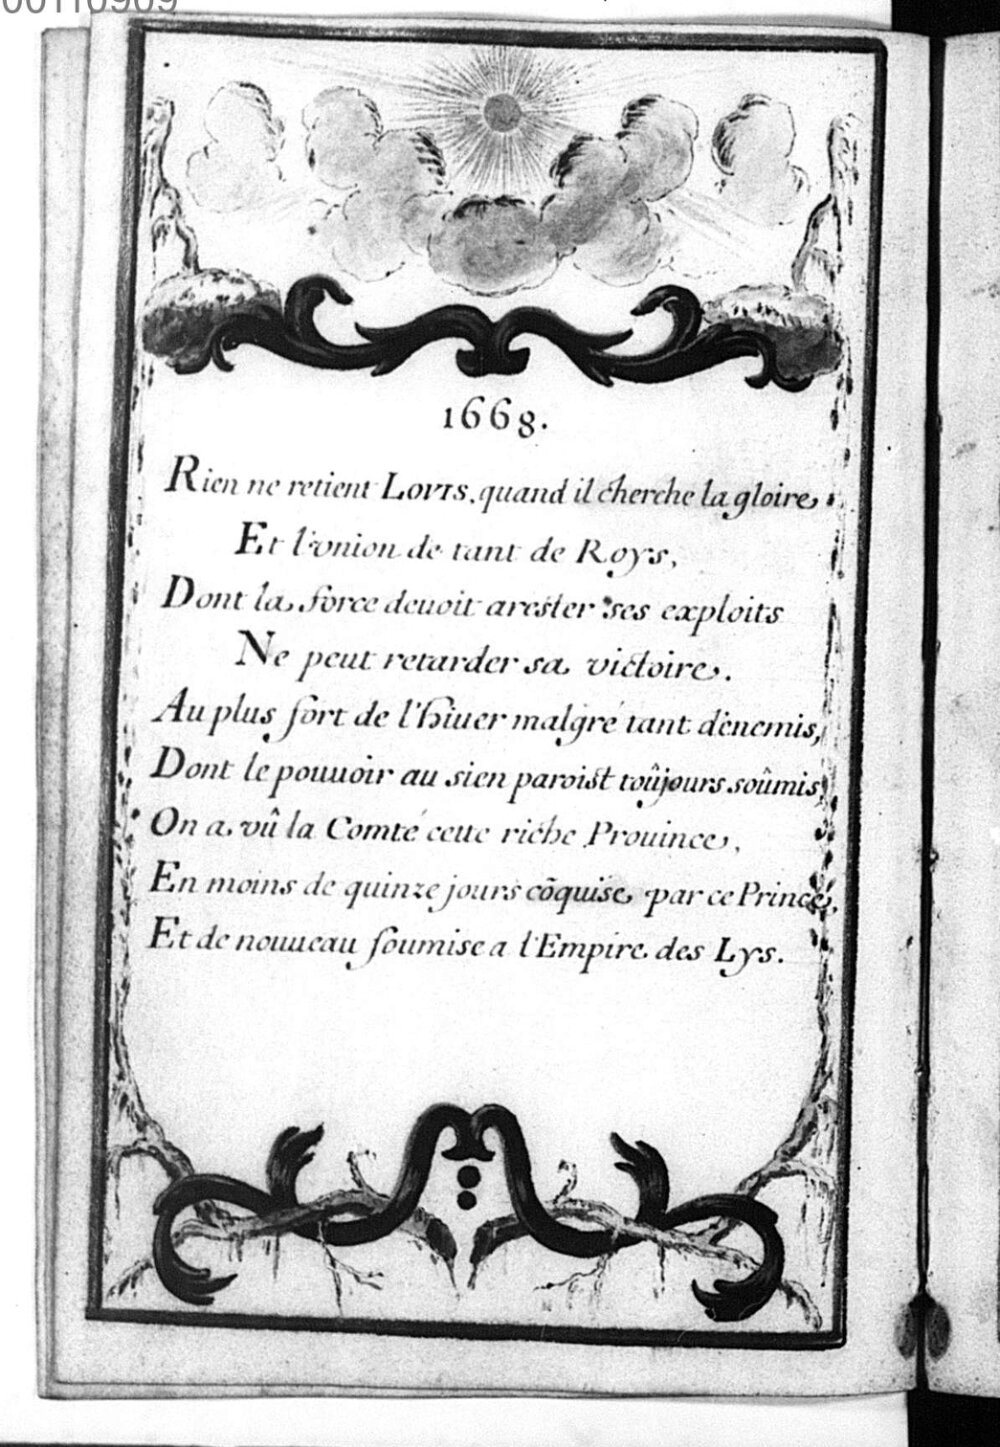 1668.
Rien ne retient LOVIS, quand il cherche la gloire,
Et l'vnion de tant de Roys,
Dont la force deuoit arester ses exploits
Ne peut retarder sa victoire.
Au plus fort de l'hiuer malgré tant d'enemis,
Dont le pouuoir au sien paroist toûjours soûmis,
On a vû la Comté cette riche Prouince,
En moins de quinze jours cõquise par ce Prince,
Et de nouueau soumise a l'Empire des Lys.